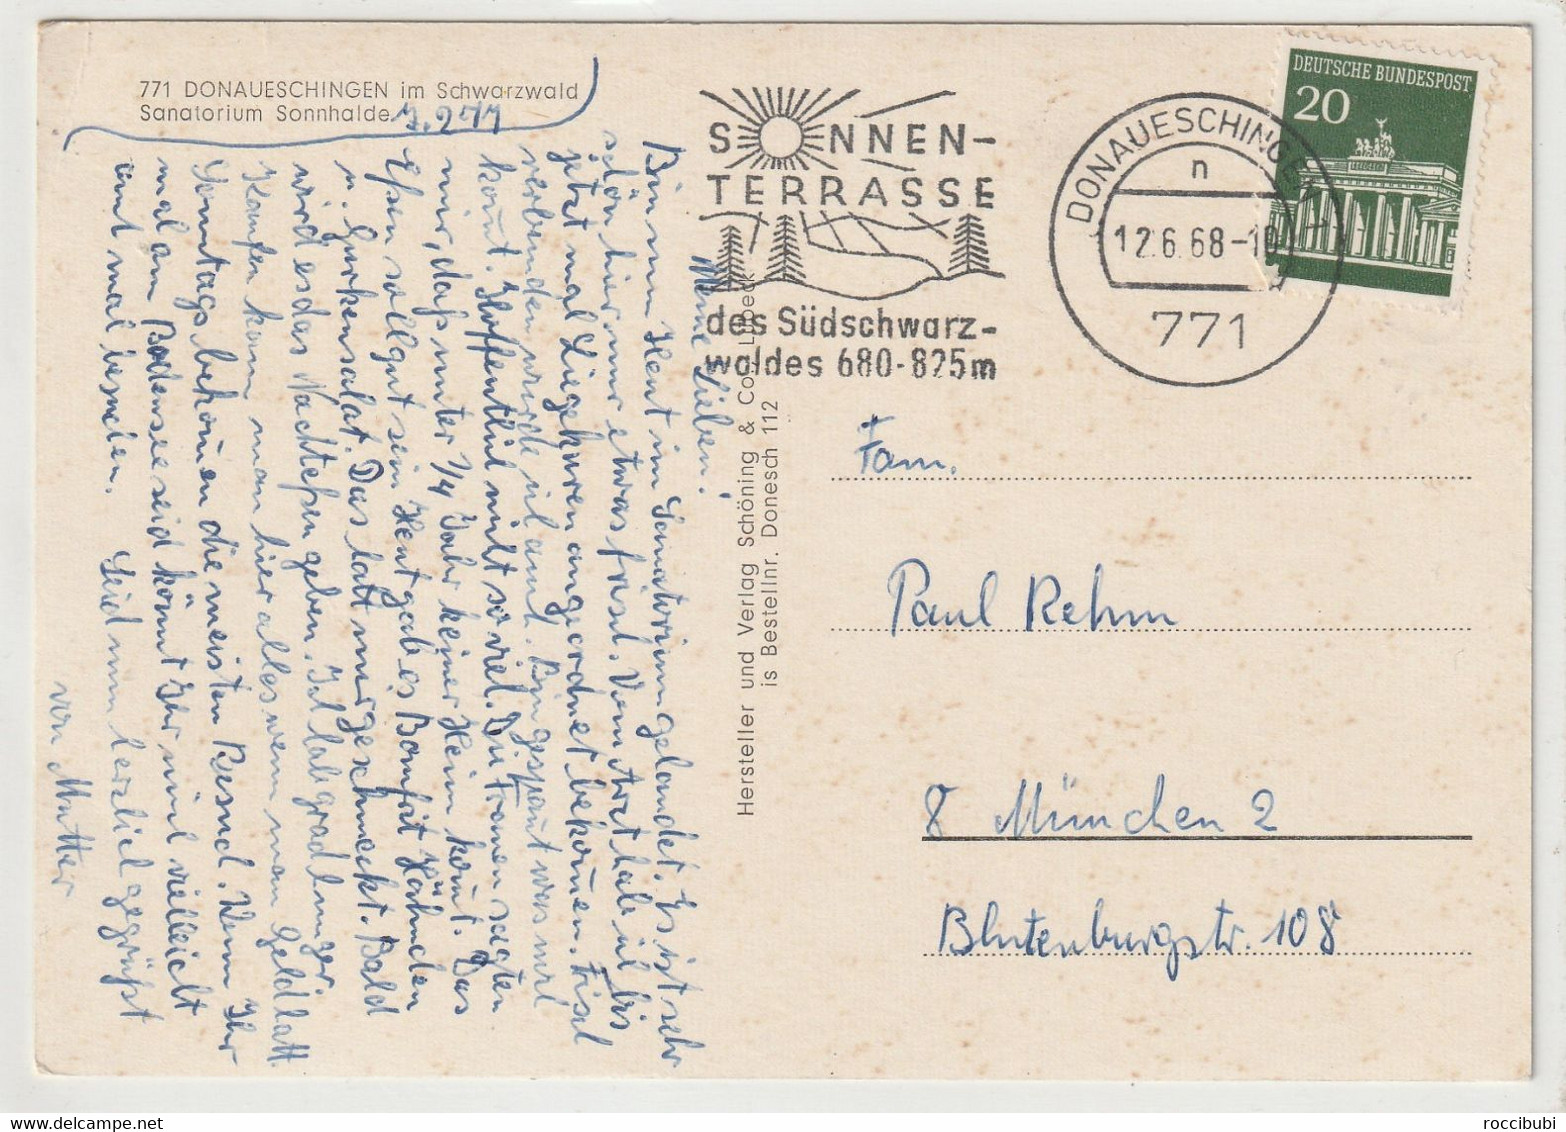 771 DONAUESCHINGEN im Schwarzwald
Sanatorium Sonnhalde
Meine Lieben!
Bin nun Heut im Sanatorium gelandet. Es ist sehr
schön hier nur etwas frisch. Vom Arzt habe ich bis
jetzt mal Liegekuren angeordnet bekomen. Fisel
verbunden wurde ich auch. Bin gespant was noch
komt. Hoffentlich nicht so viel. Die Frauen sagten
mir, daß unter 1/4 Jahr keiner Heim komt. Das
Essen soll gut sein Heut gab es Hähnchen
u. Gurkensalat. Das hatt mir geschmeckt. Bald
wird es das Nachtessen geben. Ich hab grad Hunger
Kaufen kann man hier alles wenn man Geld hatt.
Sonntags bekomen die meisten Besuch. Wenn Ihr
mal am Bodensee seid könnt Ihr mich vielleicht
auch mal besuchen. Seid nun herzlich gegrüßt
von Mutter
Hersteller und Verlag Schöning & Co., Lübeck
is Bestellnr. Donesch 112
SONNEN-
TERRASSE
des Südschwarz-
waldes 680-825m
DONAUESCHINGEN
n
12.6.68-10
771
DEUTSCHE BUNDESPOST
20
Fam.
Paul Rehm
8 München 2
Blutenburgstr. 108
roccibubi